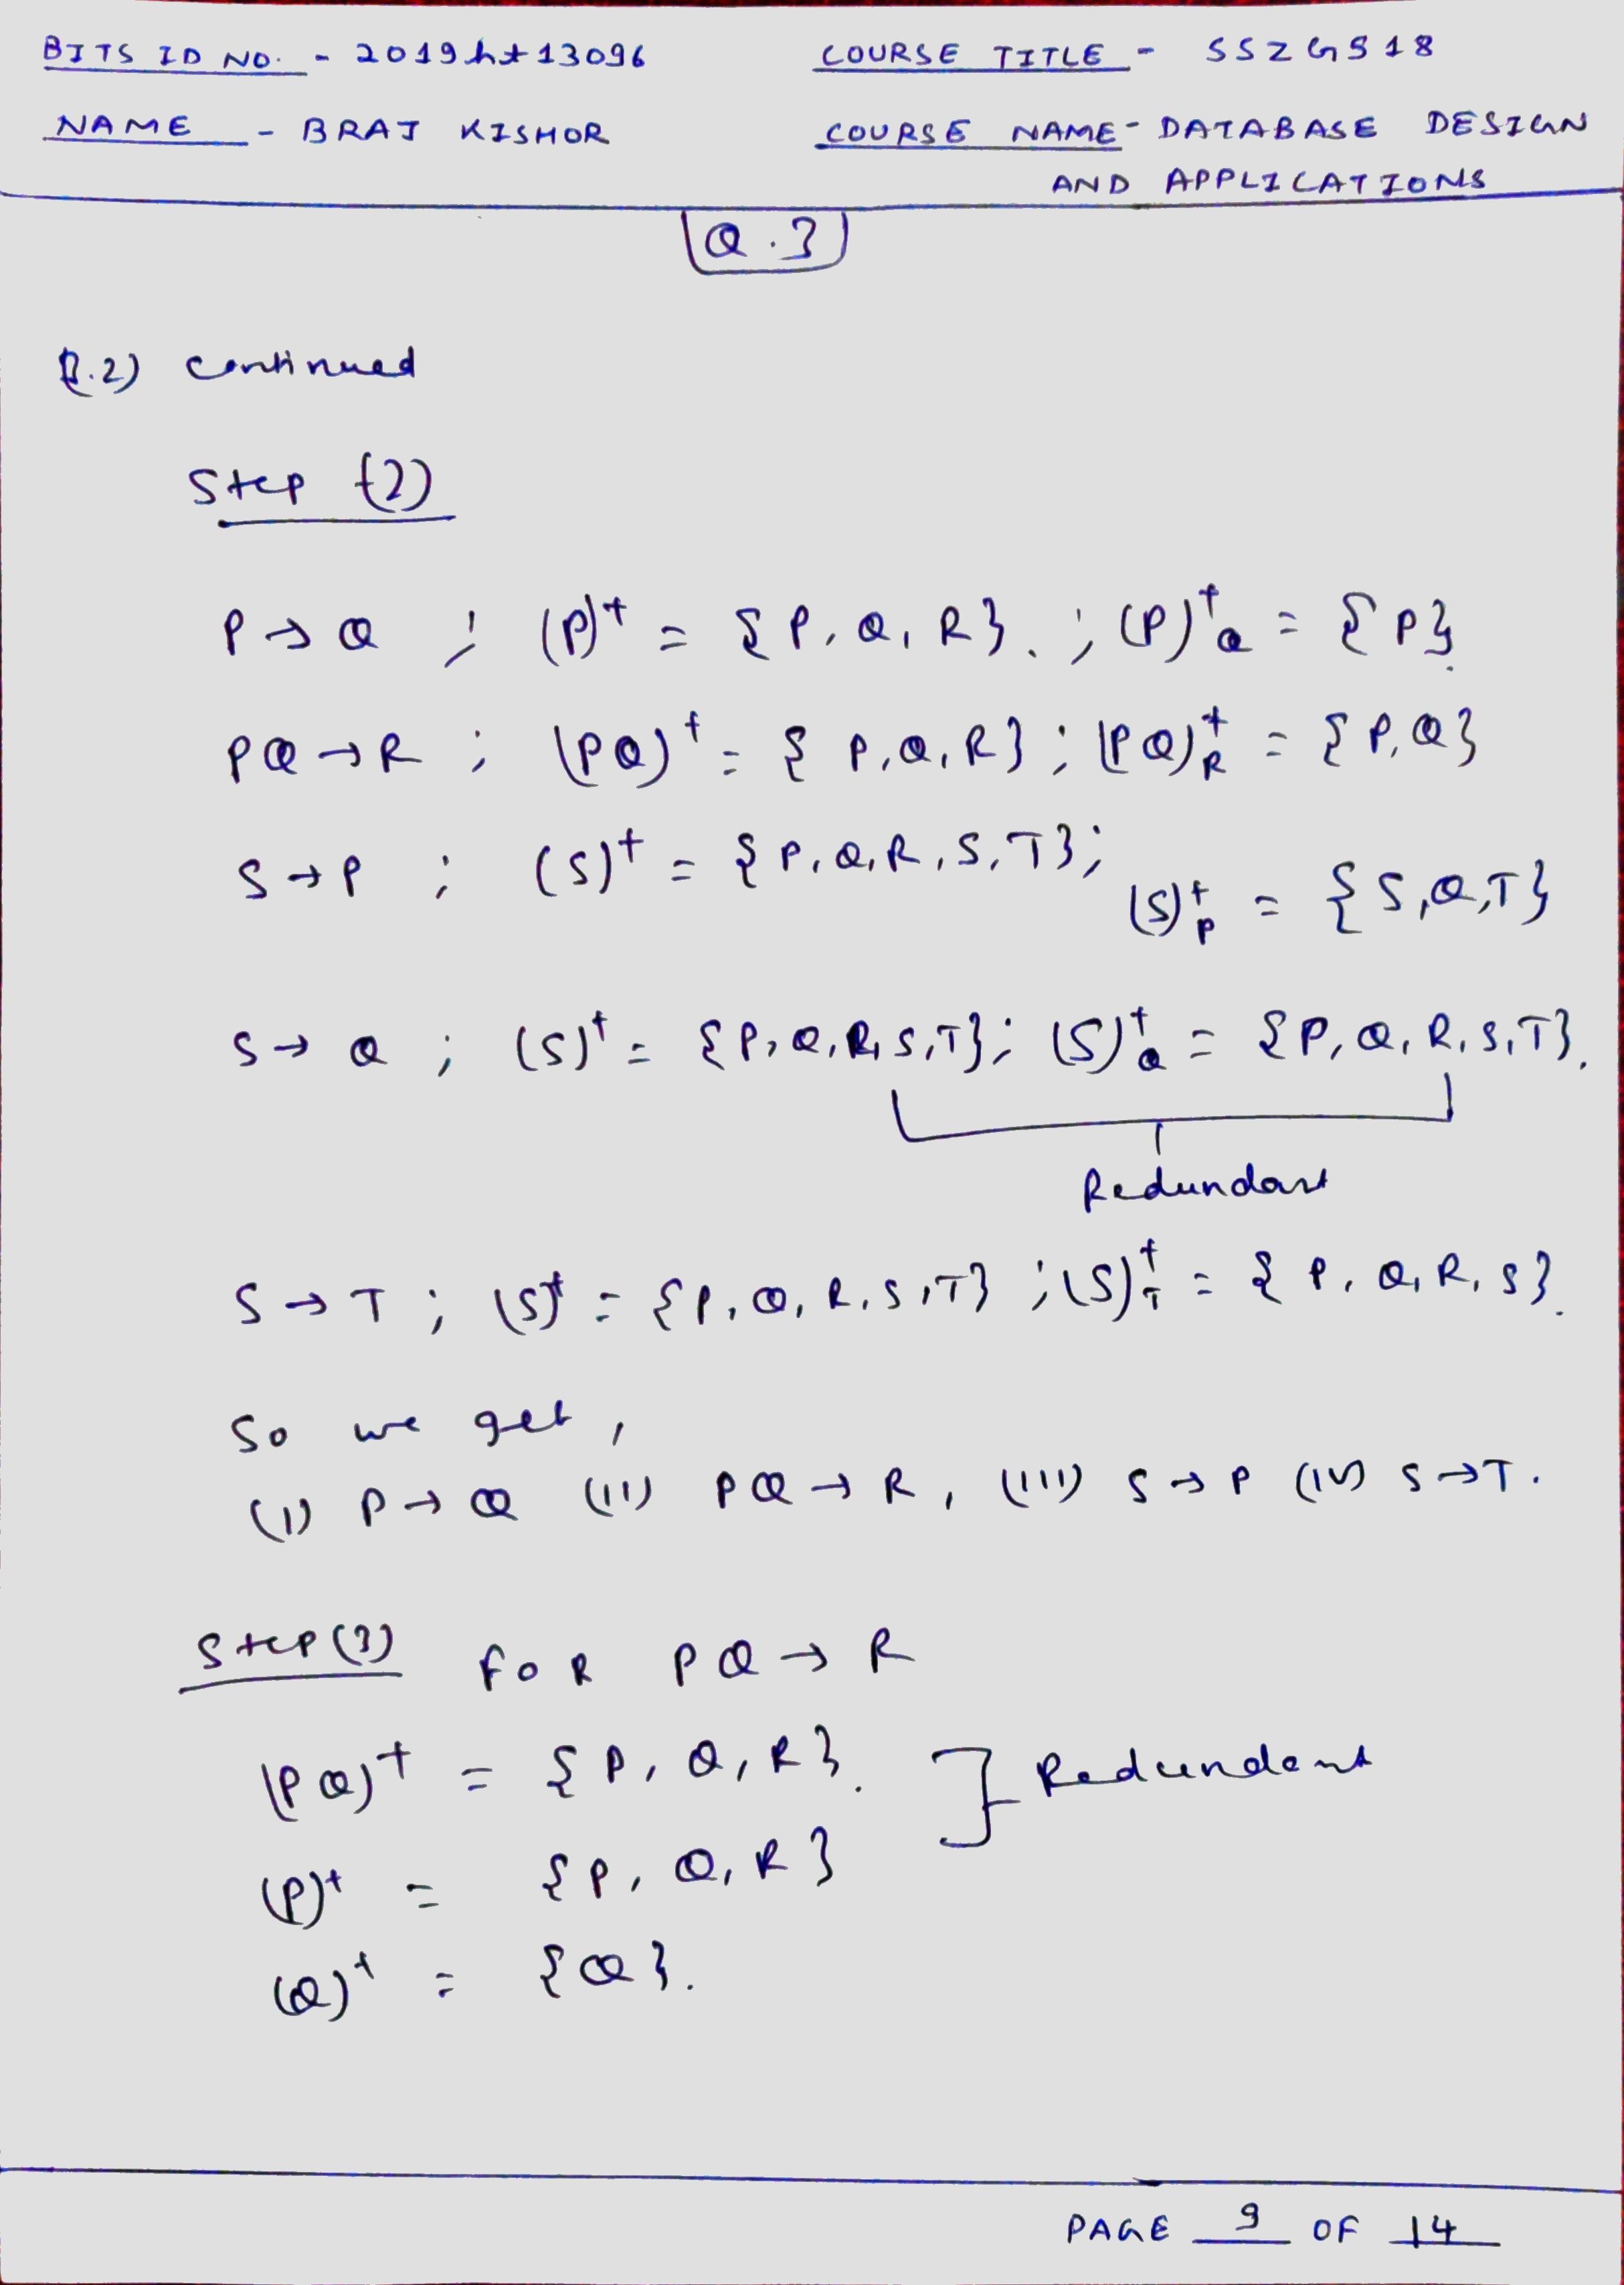 BITS ID NO. - 2019ht13096 COURSE TITLE - SSZG518
NAME - BRAJ KISHOR COURSE NAME - DATABASE DESIGN
AND APPLICATIONS
Q.3
continued
Step (2)
P → Q ; (P)⁺ = {P, Q, R}. ; (P)⁺Q = {P}.
PQ → R ; (PQ)⁺ = {P, Q, R} ; (PQ)⁺R = {P, Q}
S → P ; (S)⁺ = {P, Q, R, S, T} ;
(S)⁺P = {S, Q, T}
S → Q ; (S)⁺ = {P, Q, R, S, T} ; (S)⁺Q = {P, Q, R, S, T}.
Redundant
S → T ; (S)⁺ = {P, Q, R, S, T} ; (S)⁺T = {P, Q, R, S}.
So we get,
(I) P → Q (II) PQ → R, (III) S → P (IV) S → T.
Step (3) FOR PQ → R
(PQ)⁺ = {P, Q, R}. ] Redundant
(P)⁺ = {P, Q, R}
(Q)⁺ = {Q}.
PAGE 9 OF 14